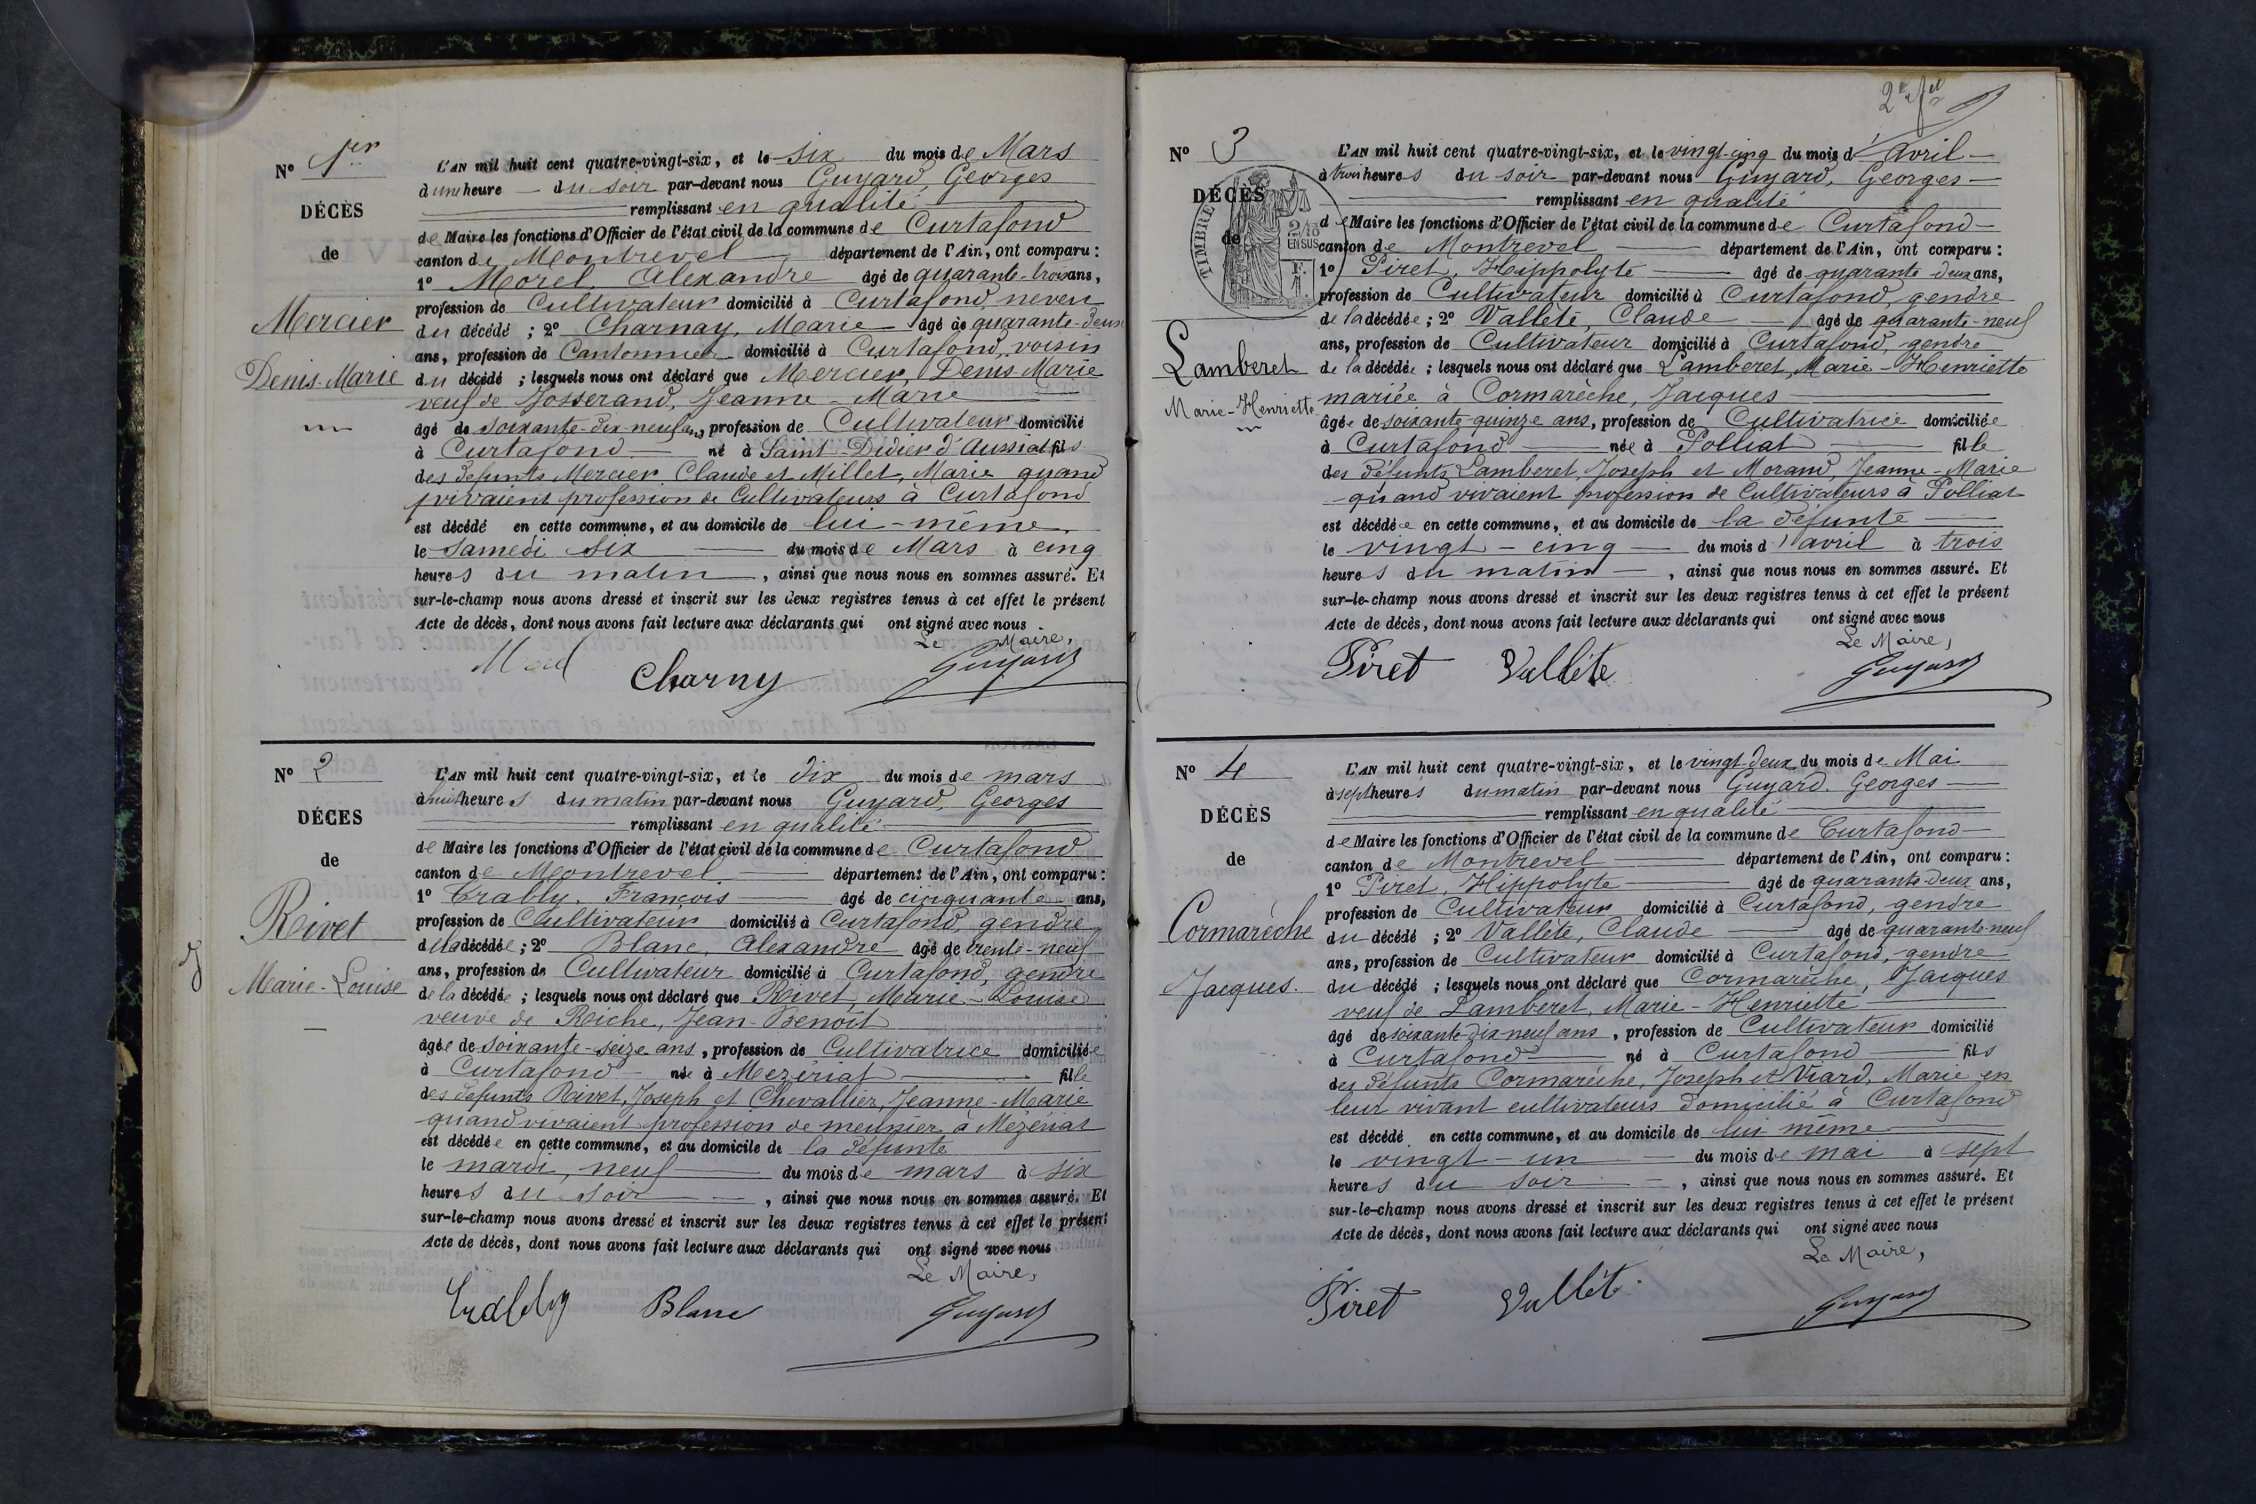 No 1er
DÉCÈS
de
Mercier
Denis-Marie
L'AN mil huit cent quatre-vingt-six, et le six du mois de Mars
à une heure du soir par-devant nous Guyard, Georges
remplissant en qualité
de Maire les fonctions d'Officier de l'état civil de la commune de Curtafond
canton de Montrevel département de l'Ain, ont comparu :
1o Morel, Alexandre âgé de quarante-trois ans,
profession de Cultivateur domicilié à Curtafond, neveu
du décédé ; 2o Charnay, Marie âgé de quarante-deux
ans, profession de Cantonnier domicilié à Curtafond, voisin
du décédé ; lesquels nous ont déclaré que Mercier, Denis-Marie
veuf de Josserand, Jeanne-Marie
âgé de soixante-dix-neuf ans, profession de Cultivateur domicilié
à Curtafond né à Saint-Didier d'Aussiat fils
des defunts Mercier Claude et Millet, Marie quand
vivaient profession de Cultivateurs à Curtafond
est décédé en cette commune, et au domicile de lui-même
le samedi six du mois de Mars à cinq
heures du matin, ainsi que nous nous en sommes assuré. Et
sur-le-champ nous avons dressé et inscrit sur les deux registres tenus à cet effet le présent
Acte de décès, dont nous avons fait lecture aux déclarants qui ont signé avec nous
Le Maire,
Morel Charny Guyard
No 2
DÉCES
de
Rivet
Marie-Louise
L'AN mil huit cent quatre-vingt-six, et le dix du mois de mars
à huit heures du matin par-devant nous Guyard, Georges
remplissant en qualité
de Maire les fonctions d'Officier de l'état civil de la commune de Curtafond
canton de Montrevel département de l'Ain, ont comparu :
1o Crably, François âgé de cinquante ans,
profession de Cultivateur domicilié à Curtafond, gendre
de la décédée ; 2o Blanc, Alexandre âgé de trente-neuf
ans, profession de Cultivateur domicilié à Curtafond, gendre
de la décédée ; lesquels nous ont déclaré que Rivet, Marie-Louise
veuve de Riche, Jean-Benoît
âgée de soixante-seize ans, profession de Cultivatrice domiciliée
à Curtafond née à Mezériat fille
des defunts Rivet, Joseph et Chevallier, Jeanne-Marie
quand vivaient profession de meunier à Mézériat
est décédée en cette commune, et au domicile de la défunte
le mardi, neuf du mois de mars à six
heures du soir, ainsi que nous nous en sommes assuré. Et
sur-le-champ nous avons dressé et inscrit sur les deux registres tenus à cet effet le présent
Acte de décès, dont nous avons fait lecture aux déclarants qui ont signé avec nous
Le Maire,
Crably Blanc Guyard
2e
No 3
DÉCÈS
de
TIMBRE
2/10
EN SUS
Lamberet
Marie-Henriette
L'AN mil huit cent quatre-vingt-six, et le vingt-cinq du mois d'avril
à trois heures du soir par-devant nous Guyard, Georges
remplissant en qualité
de Maire les fonctions d'Officier de l'état civil de la commune de Curtafond
canton de Montrevel département de l'Ain, ont comparu :
1o Piret, Hippolyte âgé de quarante deux ans,
profession de Cultivateur domicilié à Curtafond, gendre
de la décédée ; 2o Valleté, Claude âgé de quarante-neuf
ans, profession de Cultivateur domicilié à Curtafond, gendre
de la décédée ; lesquels nous ont déclaré que Lamberet, Marie-Henriette
mariée à Cormarèche, Jacques
âgée de soixante-quinze ans, profession de Cultivatrice domiciliée
à Curtafond née à Polliat fille
des défunts Lamberet, Joseph et Morand, Jeanne-Marie
quand vivaient profession de Cultivateurs à Polliat
est décédée en cette commune, et au domicile de la défunte
le vingt-cinq du mois d'avril à trois
heures du matin, ainsi que nous nous en sommes assuré. Et
sur-le-champ nous avons dressé et inscrit sur les deux registres tenus à cet effet le présent
Acte de décès, dont nous avons fait lecture aux déclarants qui ont signé avec nous
Le Maire,
Piret Valléte Guyard
No 4
DÉCÈS
de
Cormarèche
Jacques.
L'AN mil huit cent quatre-vingt-six, et le vingt-deux du mois de Mai
à sept heures du matin par-devant nous Guyard, Georges
remplissant en qualité
de Maire les fonctions d'Officier de l'état civil de la commune de Curtafond
canton de Montrevel département de l'Ain, ont comparu :
1o Piret, Hippolyte âgé de quarante-deux ans,
profession de Cultivateur domicilié à Curtafond, gendre
du décédé ; 2o Valleté, Claude âgé de quarante-neuf
ans, profession de Cultivateur domicilié à Curtafond, gendre
du décédé ; lesquels nous ont déclaré que Cormarèche, Jacques
veuf de Lamberet, Marie-Henriette
âgé de soixante-dix-neuf ans, profession de Cultivateur domicilié
à Curtafond né à Curtafond fils
des défunts Cormarèche, Joseph et Viard, Marie en
leur vivant cultivateurs domicilié à Curtafond
est décédé en cette commune, et au domicile de lui même
le vingt-un du mois de mai à sept
heures du soir, ainsi que nous nous en sommes assuré. Et
sur-le-champ nous avons dressé et inscrit sur les deux registres tenus à cet effet le présent
Acte de décès, dont nous avons fait lecture aux déclarants qui ont signé avec nous
Le Maire,
Piret Valléte Guyard